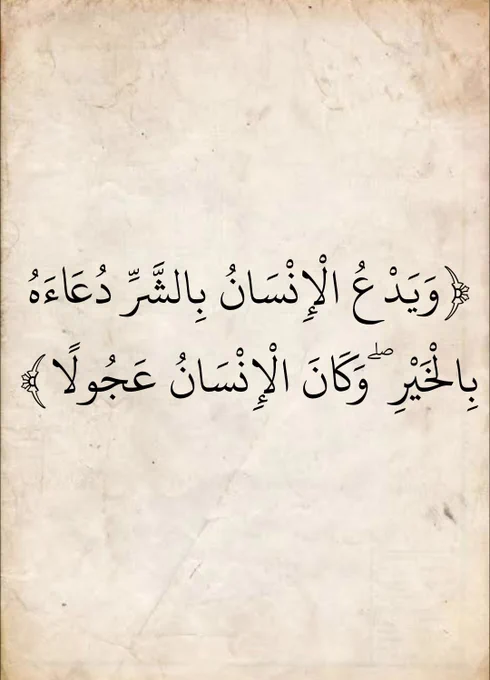 ﴿وَيَدْعُ الْإِنْسَانُ بِالشَّرِّ دُعَاءَهُ
بِالْخَيْرِ ۖ وَكَانَ الْإِنْسَانُ عَجُولًا﴾